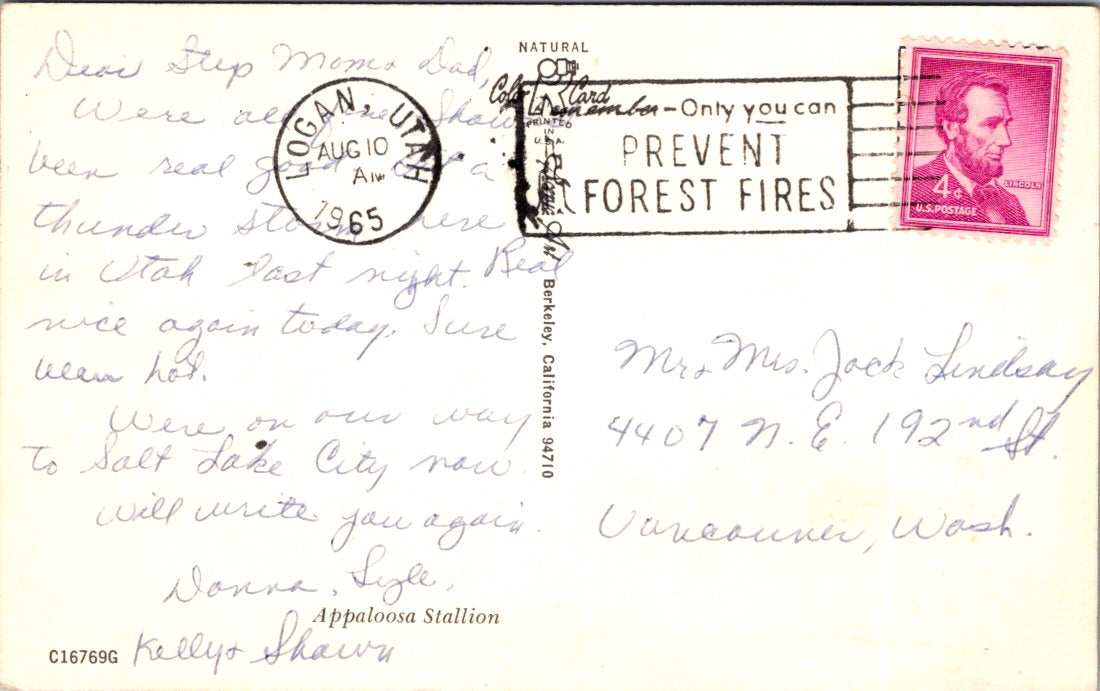 Dear Step Mom & Dad,
Were all fine. Shawn
been real good. Had a
thunder storm here
in Utah last night. Real
nice again today. Sure
been hot.
Were on our way
to Salt Lake City now
will write you again.
Donna, Lyle,
Kelly & Shawn
Appaloosa Stallion
C16769G
NATURAL
Color Card
PRINTED
IN
U.S.A.
Berkeley, California 94710
LOGAN, UTAH
AUG 10
AM
1965
Remember - Only you can
PREVENT
FOREST FIRES
4¢
LINCOLN
U.S. POSTAGE
Mr & Mrs. Jack Lindsay
4407 N. E. 192nd St.
Vancouver, Wash.